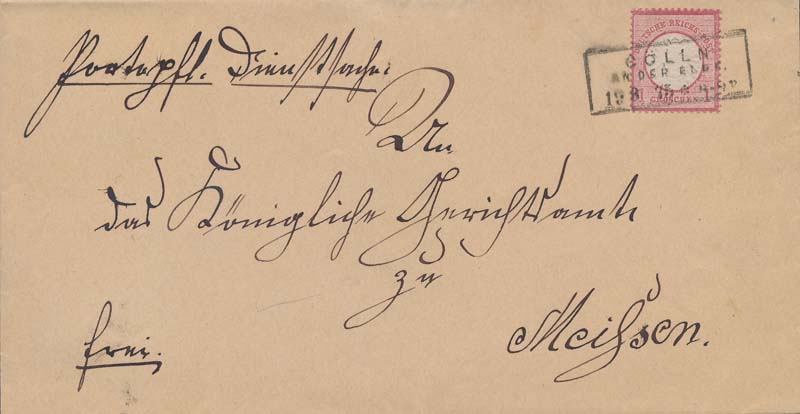 Portopfl. Dienstsache.
DEUTSCHE REICHS-POST
CÖLLN
AN DER ELBE.
GROSCHEN
An
das Königliche Gerichtsamt
zu
Meißen.
frei.